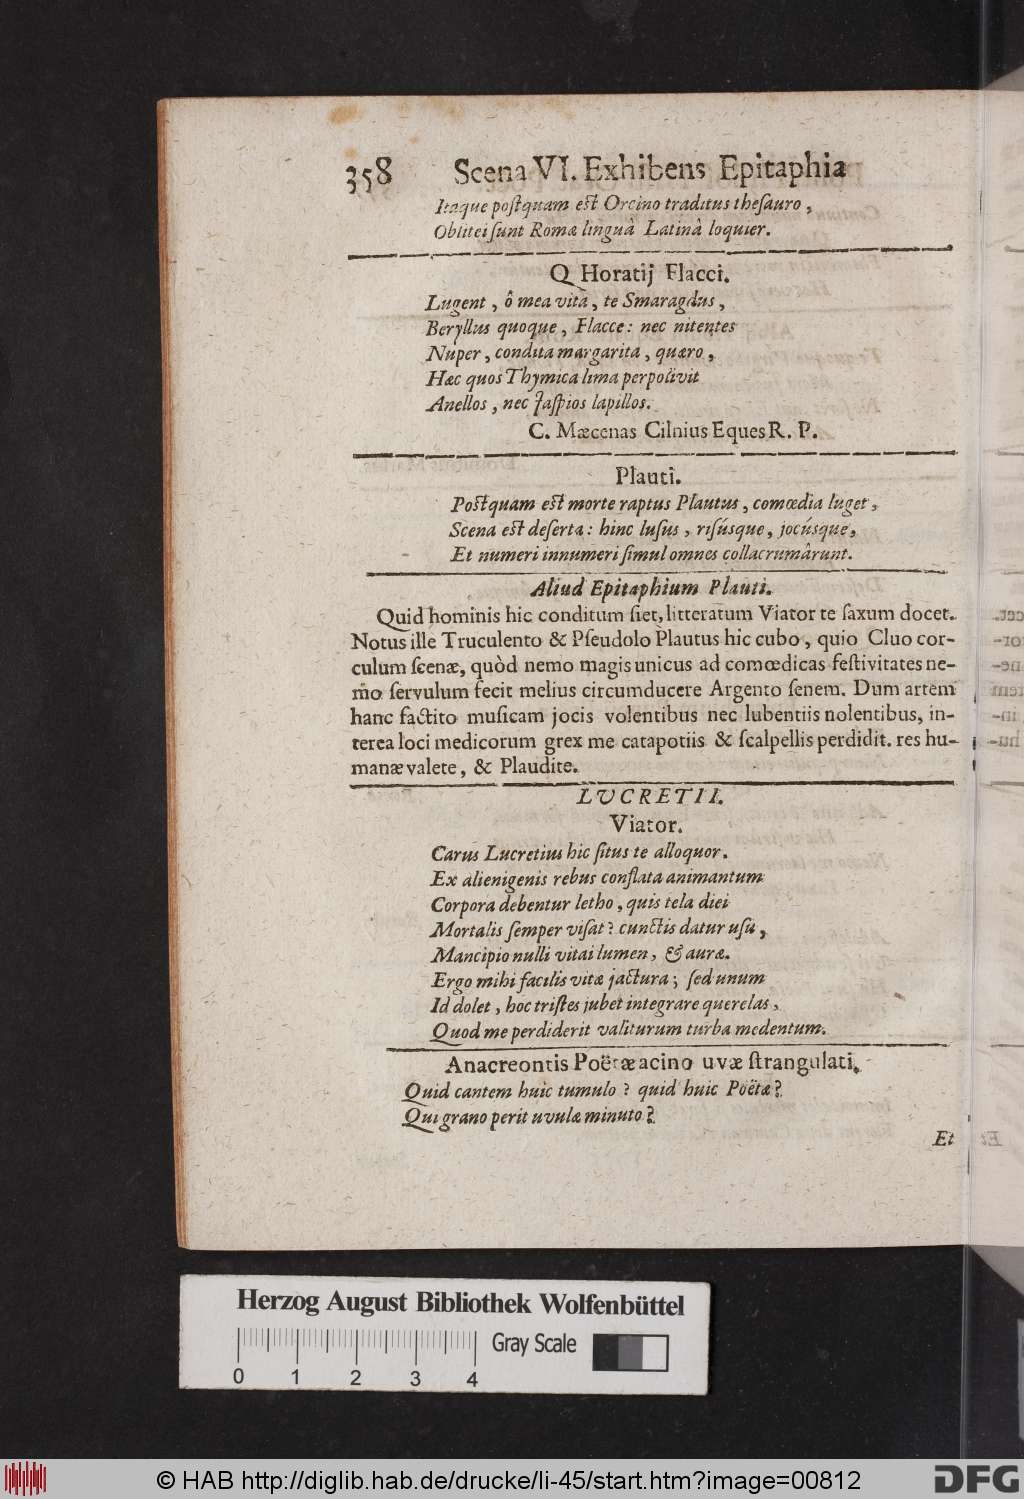 358 Scena VI. Exhibens Epitaphia
Itaque postquam est Orcino traditus thesauro,
Oblitei sunt Romæ linguâ Latinâ loquier.
Q Horatij Flacci.
Lugent, ô mea vita, te Smaragdus,
Beryllus quoque, Flacce: nec nitentes
Nuper, condita margarita, quæro,
Hæc quos Thymica lima perpolivit
Anellos, nec Jaspios lapillos.
C. Mæcenas Cilnius Eques R. P.
Plauti.
Postquam est morte raptus Plautus, comœdia luget,
Scena est deserta: hinc lusus, risúsque, jocúsque,
Et numeri innumeri simul omnes collacrumârunt.
Aliud Epitaphium Plauti.
Quid hominis hic conditum siet, litteratum Viator te saxum docet.
Notus ille Truculento & Pseudolo Plautus hic cubo, quio Cluo cor-
culum scenæ, quòd nemo magis unicus ad comœdicas festivitates ne-
mo servulum fecit melius circumducere Argento senem. Dum artem
hanc factito musicam jocis volentibus nec lubentiis nolentibus, in-
terea loci medicorum grex me catapotiis & scalpellis perdidit. res hu-
manæ valete, & Plaudite.
LVCRETII.
Viator.
Carus Lucretius hic situs te alloquor.
Ex alienigenis rebus conflata animantum
Corpora debentur letho, quis tela diei
Mortalis semper visat? cunctis datur usu,
Mancipio nulli vitai lumen, & auræ.
Ergo mihi facilis vitæ jactura; sed unum
Id dolet, hoc tristes jubet integrare querelas,
Quod me perdiderit valiturum turba medentum.
Anacreontis Poëtæ acino uvæ strangulati.
Quid cantem huic tumulo? quid huic Poëtæ?
Qui grano perit uvulæ minuto?
Et
Herzog August Bibliothek Wolfenbüttel
Gray Scale
0 1 2 3 4
© HAB http://diglib.hab.de/drucke/li-45/start.htm?image=00812
DFG